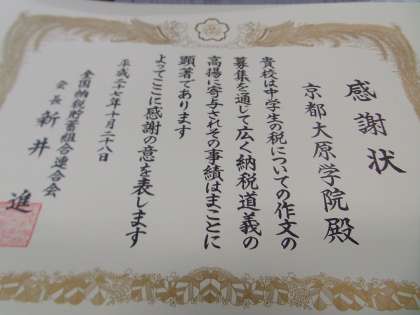 感謝状
京都大原学院殿
貴校は中学生の税についての作文の
募集を通して広く納税道義の
高揚に寄与されその事績はまことに
顕著であります
よってここに感謝の意を表します
平成二十七年十月二十八日
全国納税貯蓄組合連合会
会長 新井 進